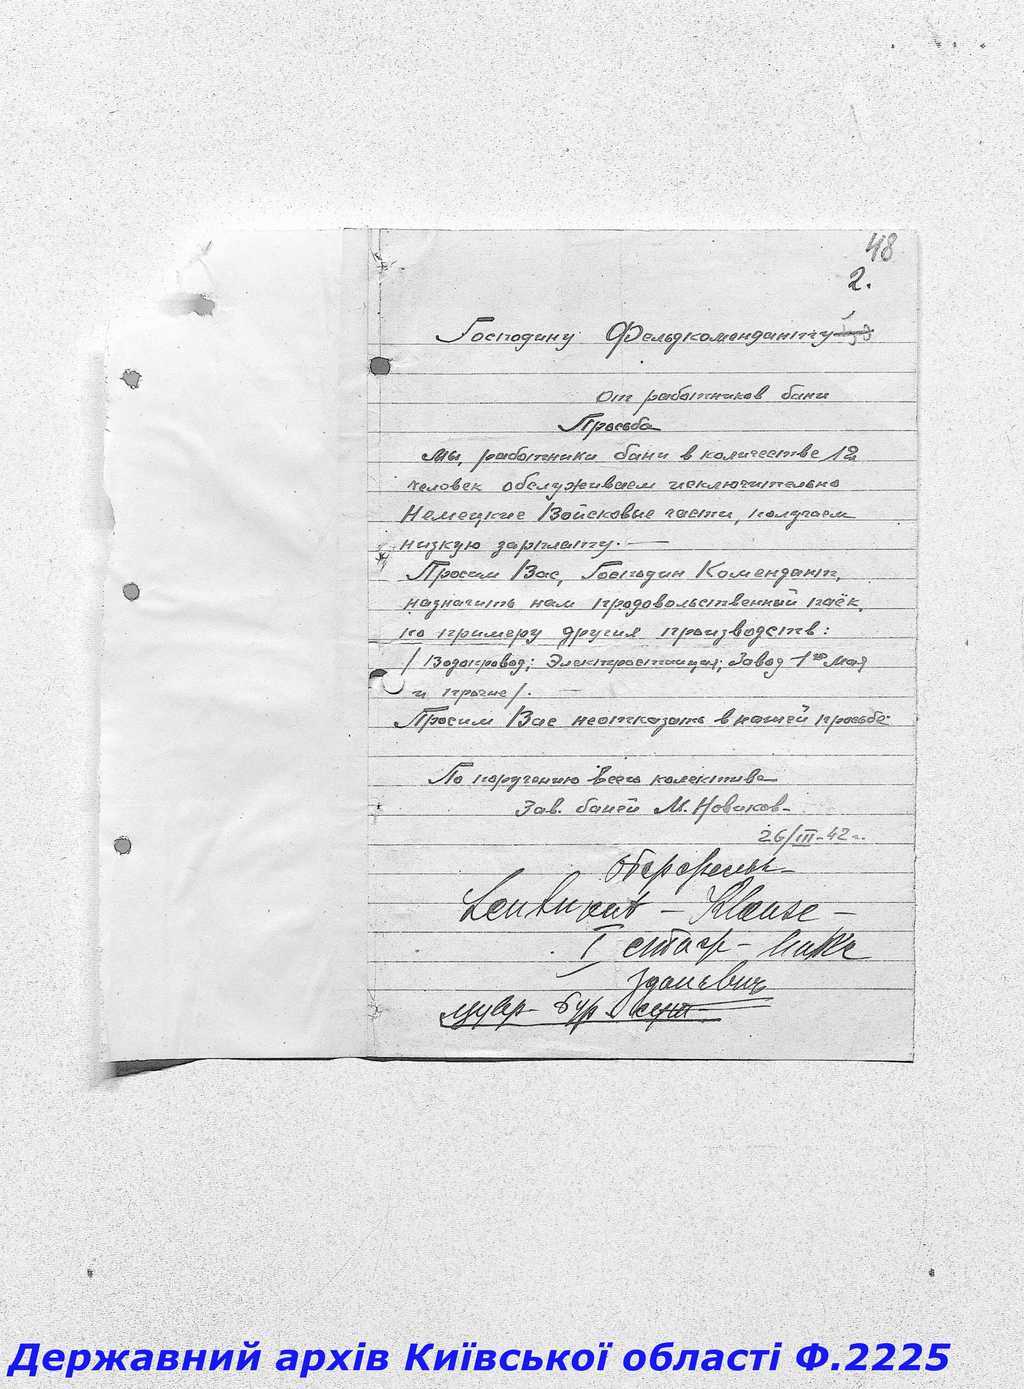 48
2.
Господину Фельдкоменданту
От работников бани
Просьба
Мы, работники бани в количестве 12
человек обслуживаем исключительно
Немецкие Войсковые части, получаем
низкую зарплату. —
Просим Вас, Господин Комендант,
назначить нам продовольственный паёк,
по примеру других производств:
/ Водопровод; Электростанция; Завод 1го Мая
и прочие /. —
Просим Вас неотказать в нашей просьбе
По поручению всего колектива
Зав. баней М. Новаков
26/III-42г.
Leutnant – Klause –
Державний архів Київської області Ф.2225